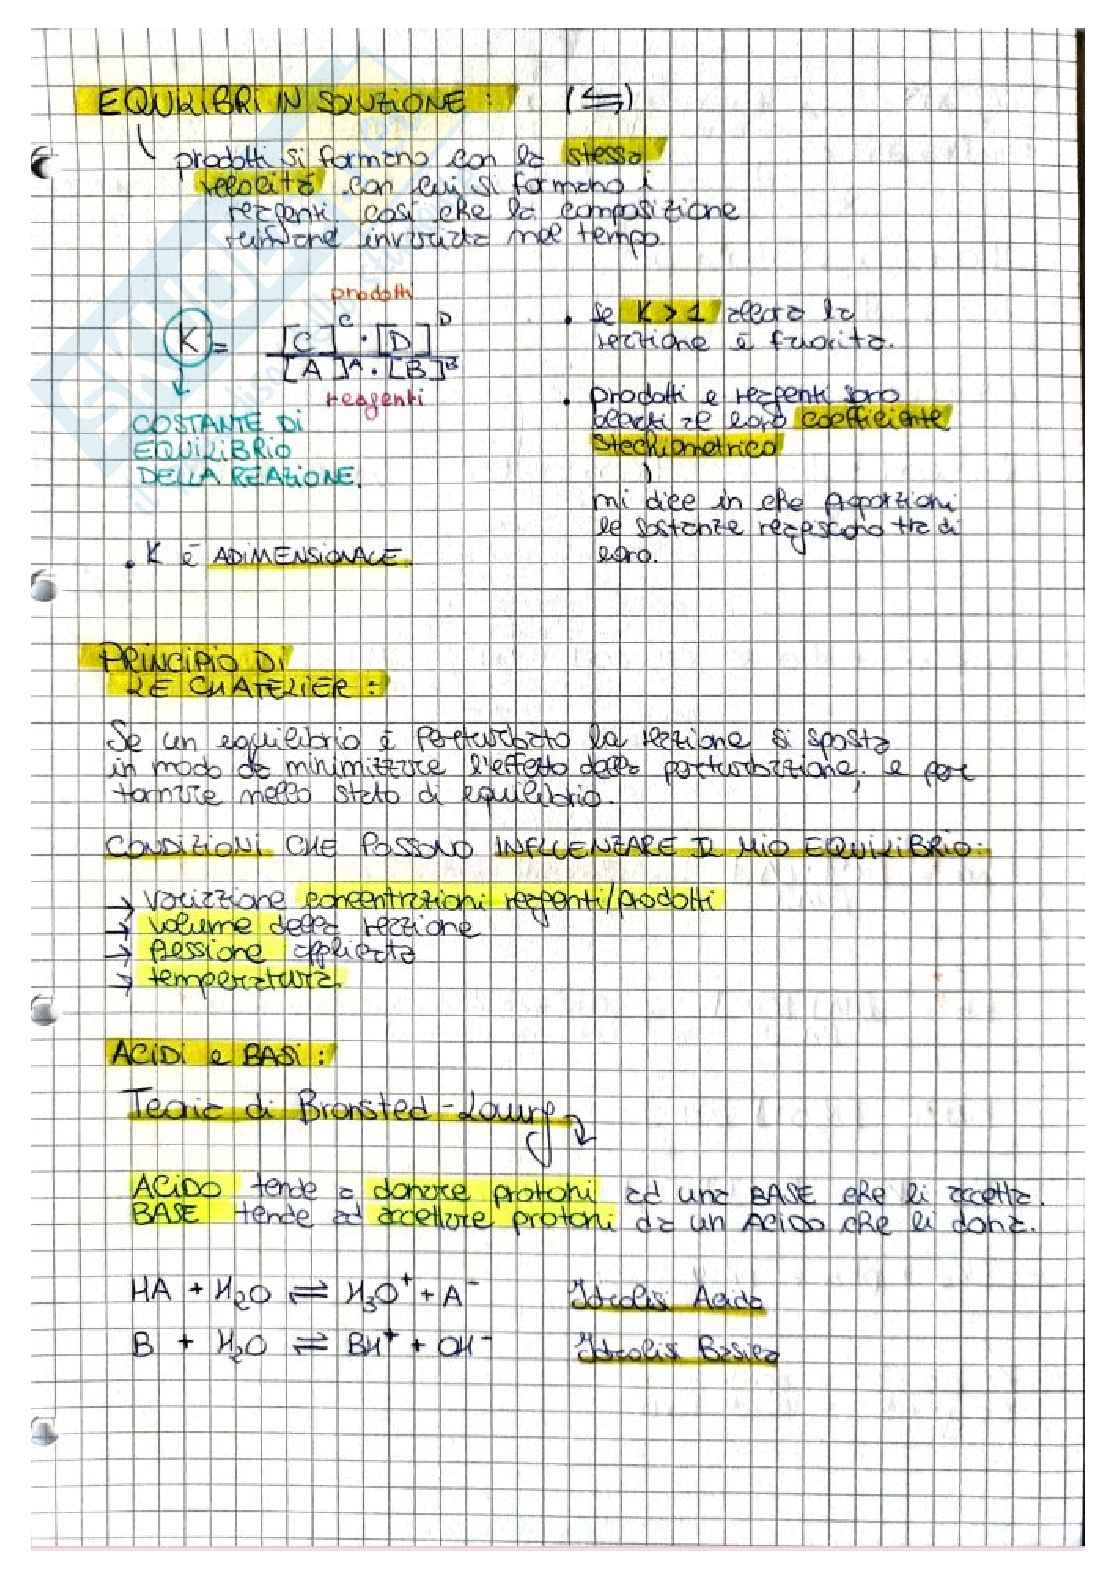 EQUILIBRI IN SOLUZIONE : (⇆)
prodotti si formano con la stessa
velocità con cui si formano i
reagenti. così che la composizione
rimane invariata nel tempo.
prodotti
K = [C]^C · [D]^D / [A]^A · [B]^B
reagenti
COSTANTE DI
EQUILIBRIO
DELLA REAZIONE.
• K è ADIMENSIONALE.
• Se K > 1 allora la
reazione è favorita.
• prodotti e reagenti sono
elevati al loro coefficiente
stechiometrico
mi dice in che proporzioni
le sostanze reagiscono tra di
loro.
PRINCIPIO DI
LE CHATELIER :
Se un equilibrio è perturbato la reazione si sposta
in modo da minimizzare l'effetto della perturbazione, e per
tornare nello stato di equilibrio.
CONDIZIONI CHE POSSONO INFLUENZARE IL MIO EQUILIBRIO:
→ variazione concentrazioni reagenti/prodotti
→ volume della reazione
→ pressione applicata
→ temperatura.
ACIDI e BASI :
Teoria di Bronsted-Lowry
ACIDO tende a donare protoni ad una BASE che li accetta.
BASE tende ad accettare protoni da un ACIDO che li dona.
HA + H₂O ⇌ H₃O⁺ + A⁻ Idrolisi Acida
B + H₂O ⇌ BH⁺ + OH⁻ Idrolisi Basica